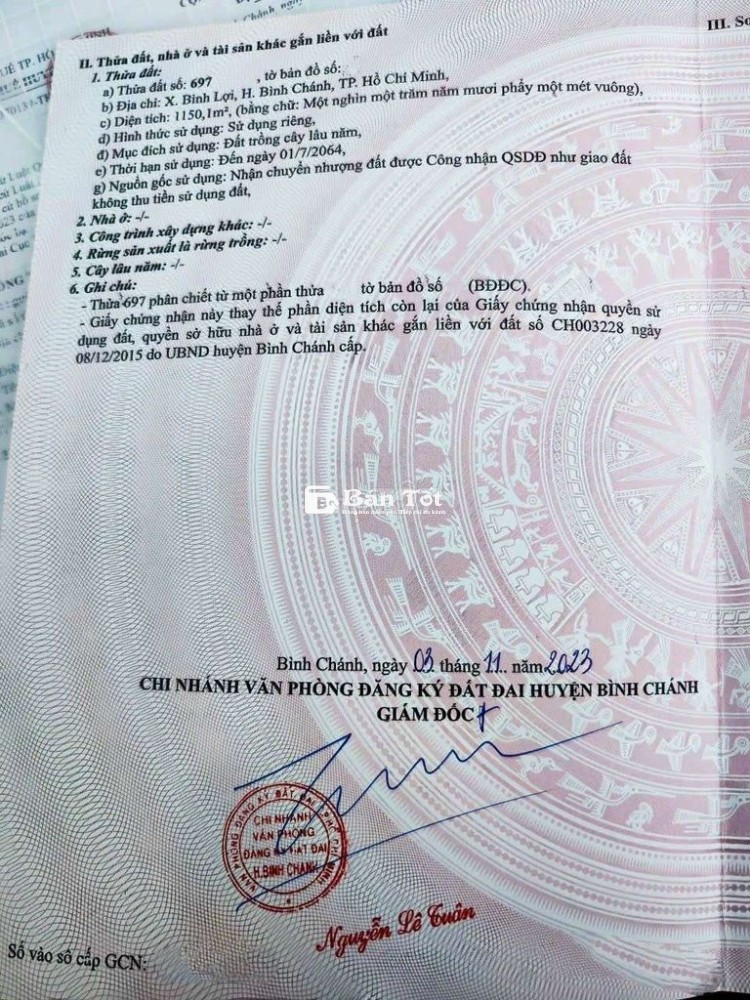 II. Thửa đất, nhà ở và tài sản khác gắn liền với đất
III. Sơ
1. Thửa đất:
a) Thửa đất số: 697 , tờ bản đồ số:
b) Địa chỉ: X. Bình Lợi, H. Bình Chánh, TP. Hồ Chí Minh,
c) Diện tích: 1150,1m², (bằng chữ: Một nghìn một trăm năm mươi phẩy một mét vuông),
d) Hình thức sử dụng: Sử dụng riêng,
đ) Mục đích sử dụng: Đất trồng cây lâu năm,
e) Thời hạn sử dụng: Đến ngày 01/7/2064,
g) Nguồn gốc sử dụng: Nhận chuyển nhượng đất được Công nhận QSDĐ như giao đất
không thu tiền sử dụng đất,
2. Nhà ở: -/-
3. Công trình xây dựng khác: -/-
4. Rừng sản xuất là rừng trồng: -/-
5. Cây lâu năm: -/-
6. Ghi chú:
- Thửa 697 phân chiết từ một phần thửa tờ bản đồ số (BĐĐC).
- Giấy chứng nhận này thay thế phần diện tích còn lại của Giấy chứng nhận quyền sử
dụng đất, quyền sở hữu nhà ở và tài sản khác gắn liền với đất số CH003228 ngày
08/12/2015 do UBND huyện Bình Chánh cấp.
Bán Tốt
Bình Chánh, ngày 03 tháng 11.. năm 2023
CHI NHÁNH VĂN PHÒNG ĐĂNG KÝ ĐẤT ĐAI HUYỆN BÌNH CHÁNH
GIÁM ĐỐC
VĂN PHÒNG ĐĂNG KÝ ĐẤT ĐAI T.P HỒ CHÍ MINH
CHI NHÁNH
VĂN PHÒNG
ĐĂNG KÝ ĐẤT ĐAI
H.BÌNH CHÁNH
Nguyễn Lê Tuân
Số vào sổ cấp GCN: